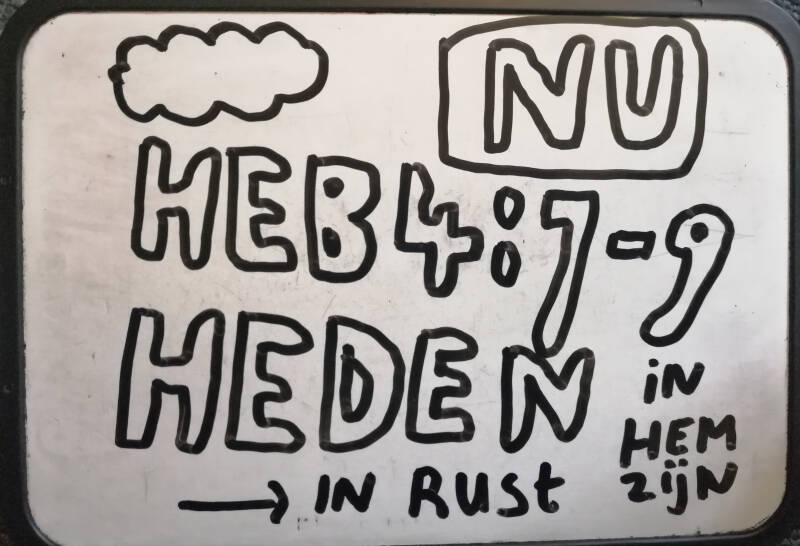 NU
HEB 4:7-9
HEDEN
iN
HEM
ZijN
→ IN RUSt